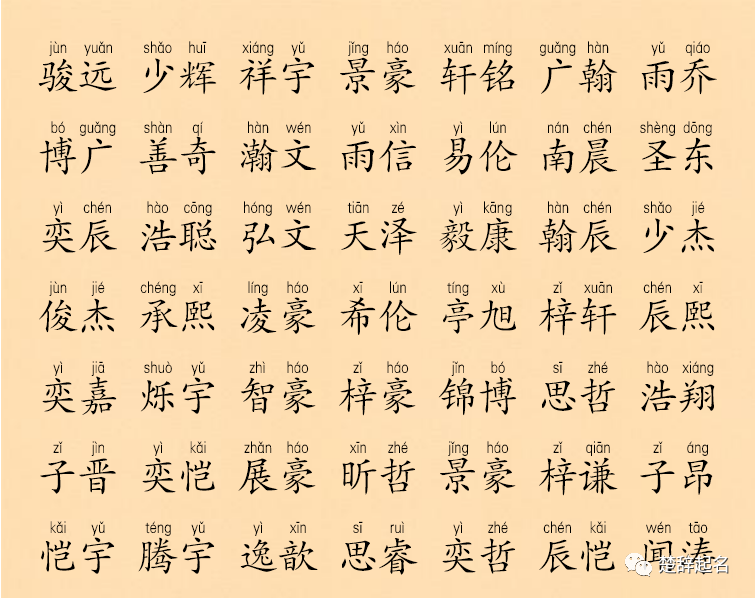 jùn yuǎn shǎo huī xiáng yǔ jǐng háo xuān míng guǎng hàn yǔ qiáo
骏远 少辉 祥宇 景豪 轩铭 广翰 雨乔
bó guǎng shàn qí hàn wén yǔ xìn yì lún nán chén shèng dōng
博广 善奇 瀚文 雨信 易伦 南晨 圣东
yì chén hào cōng hóng wén tiān zé yì kāng hàn chén shǎo jié
奕辰 浩聪 弘文 天泽 毅康 翰辰 少杰
jùn jié chéng xī líng háo xī lún tíng xù zǐ xuān chén xī
俊杰 承熙 凌豪 希伦 亭旭 梓轩 辰熙
yì jiā shuò yǔ zhì háo zǐ háo jǐn bó sī zhé hào xiáng
奕嘉 烁宇 智豪 梓豪 锦博 思哲 浩翔
zǐ jìn yì kǎi zhǎn háo xīn zhé jǐng háo zǐ qiān zǐ áng
子晋 奕恺 展豪 昕哲 景豪 梓谦 子昂
kǎi yǔ téng yǔ yì xīn sī ruì yì zhé chén kǎi wén tāo
恺宇 腾宇 逸歆 思睿 奕哲 辰恺 闻涛
楚辞起名